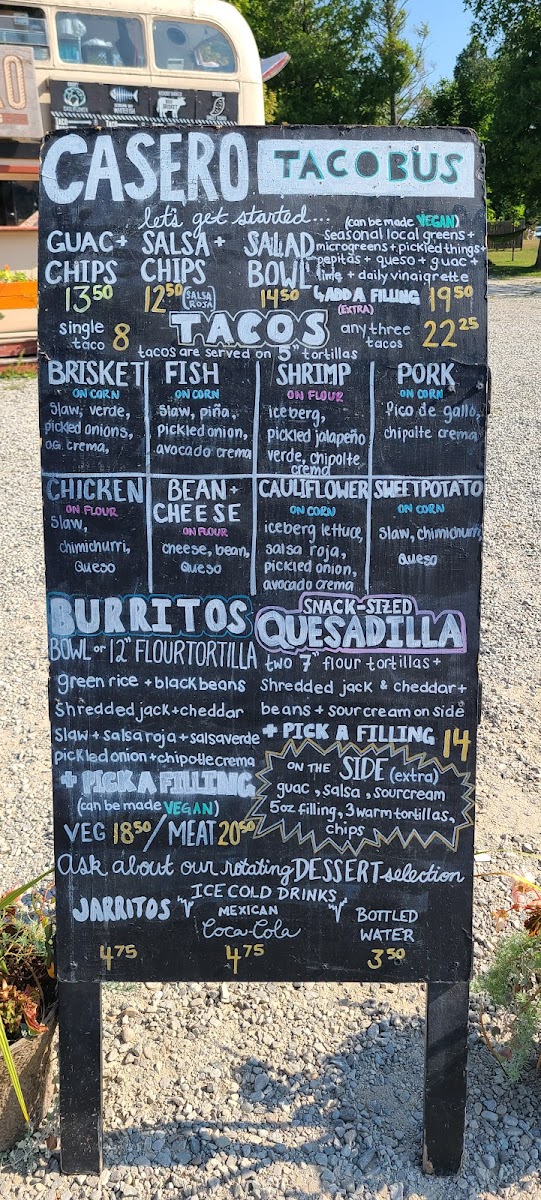 CASERO TACO BUS
let's get started...
GUAC + CHIPS 13⁵⁰
SALSA + CHIPS 12⁵⁰ SALSA ROJA
SALAD BOWL 14⁵⁰
(can be made VEGAN)
seasonal local greens +
microgreens + pickled things +
pepitas + queso + guac +
lime + daily vinaigrette
ADD A FILLING 19⁵⁰
(EXTRA)
TACOS
single taco 8
any three tacos 22²⁵
tacos are served on 5" tortillas
BRISKET
ON CORN
slaw, verde,
pickled onions,
og crema,
FISH
ON CORN
slaw, piña,
pickled onion,
avocado crema
SHRIMP
ON FLOUR
iceberg,
pickled jalapeño
verde, chipolte
crema
PORK
ON CORN
Pico de gallo,
chipolte crema
CHICKEN
ON FLOUR
slaw,
chimichurri,
Queso
BEAN +
CHEESE
ON FLOUR
cheese, bean,
Queso
CAULIFLOWER
ON CORN
iceberg lettuce,
salsa roja,
pickled onion,
avocado crema
SWEET POTATO
ON CORN
slaw, chimichurri,
Queso
BURRITOS
BOWL or 12" FLOUR TORTILLA
green rice + black beans
shredded jack + cheddar
slaw + salsa roja + salsa verde
pickled onion + chipotle crema
+ PICK A FILLING
(can be made VEGAN)
VEG 18⁵⁰ / MEAT 20⁵⁰
SNACK-SIZED
QUESADILLA
two 7" flour tortillas +
shredded jack & cheddar +
beans + sour cream on side
+ PICK A FILLING 14
ON THE SIDE (extra)
guac, salsa, sourcream
5oz filling, 3 warm tortillas,
chips
Ask about our rotating DESSERT selection
ICE COLD DRINKS
JARRITOS 4⁷⁵
MEXICAN
Coca-Cola
4⁷⁵
BOTTLED
WATER
3⁵⁰